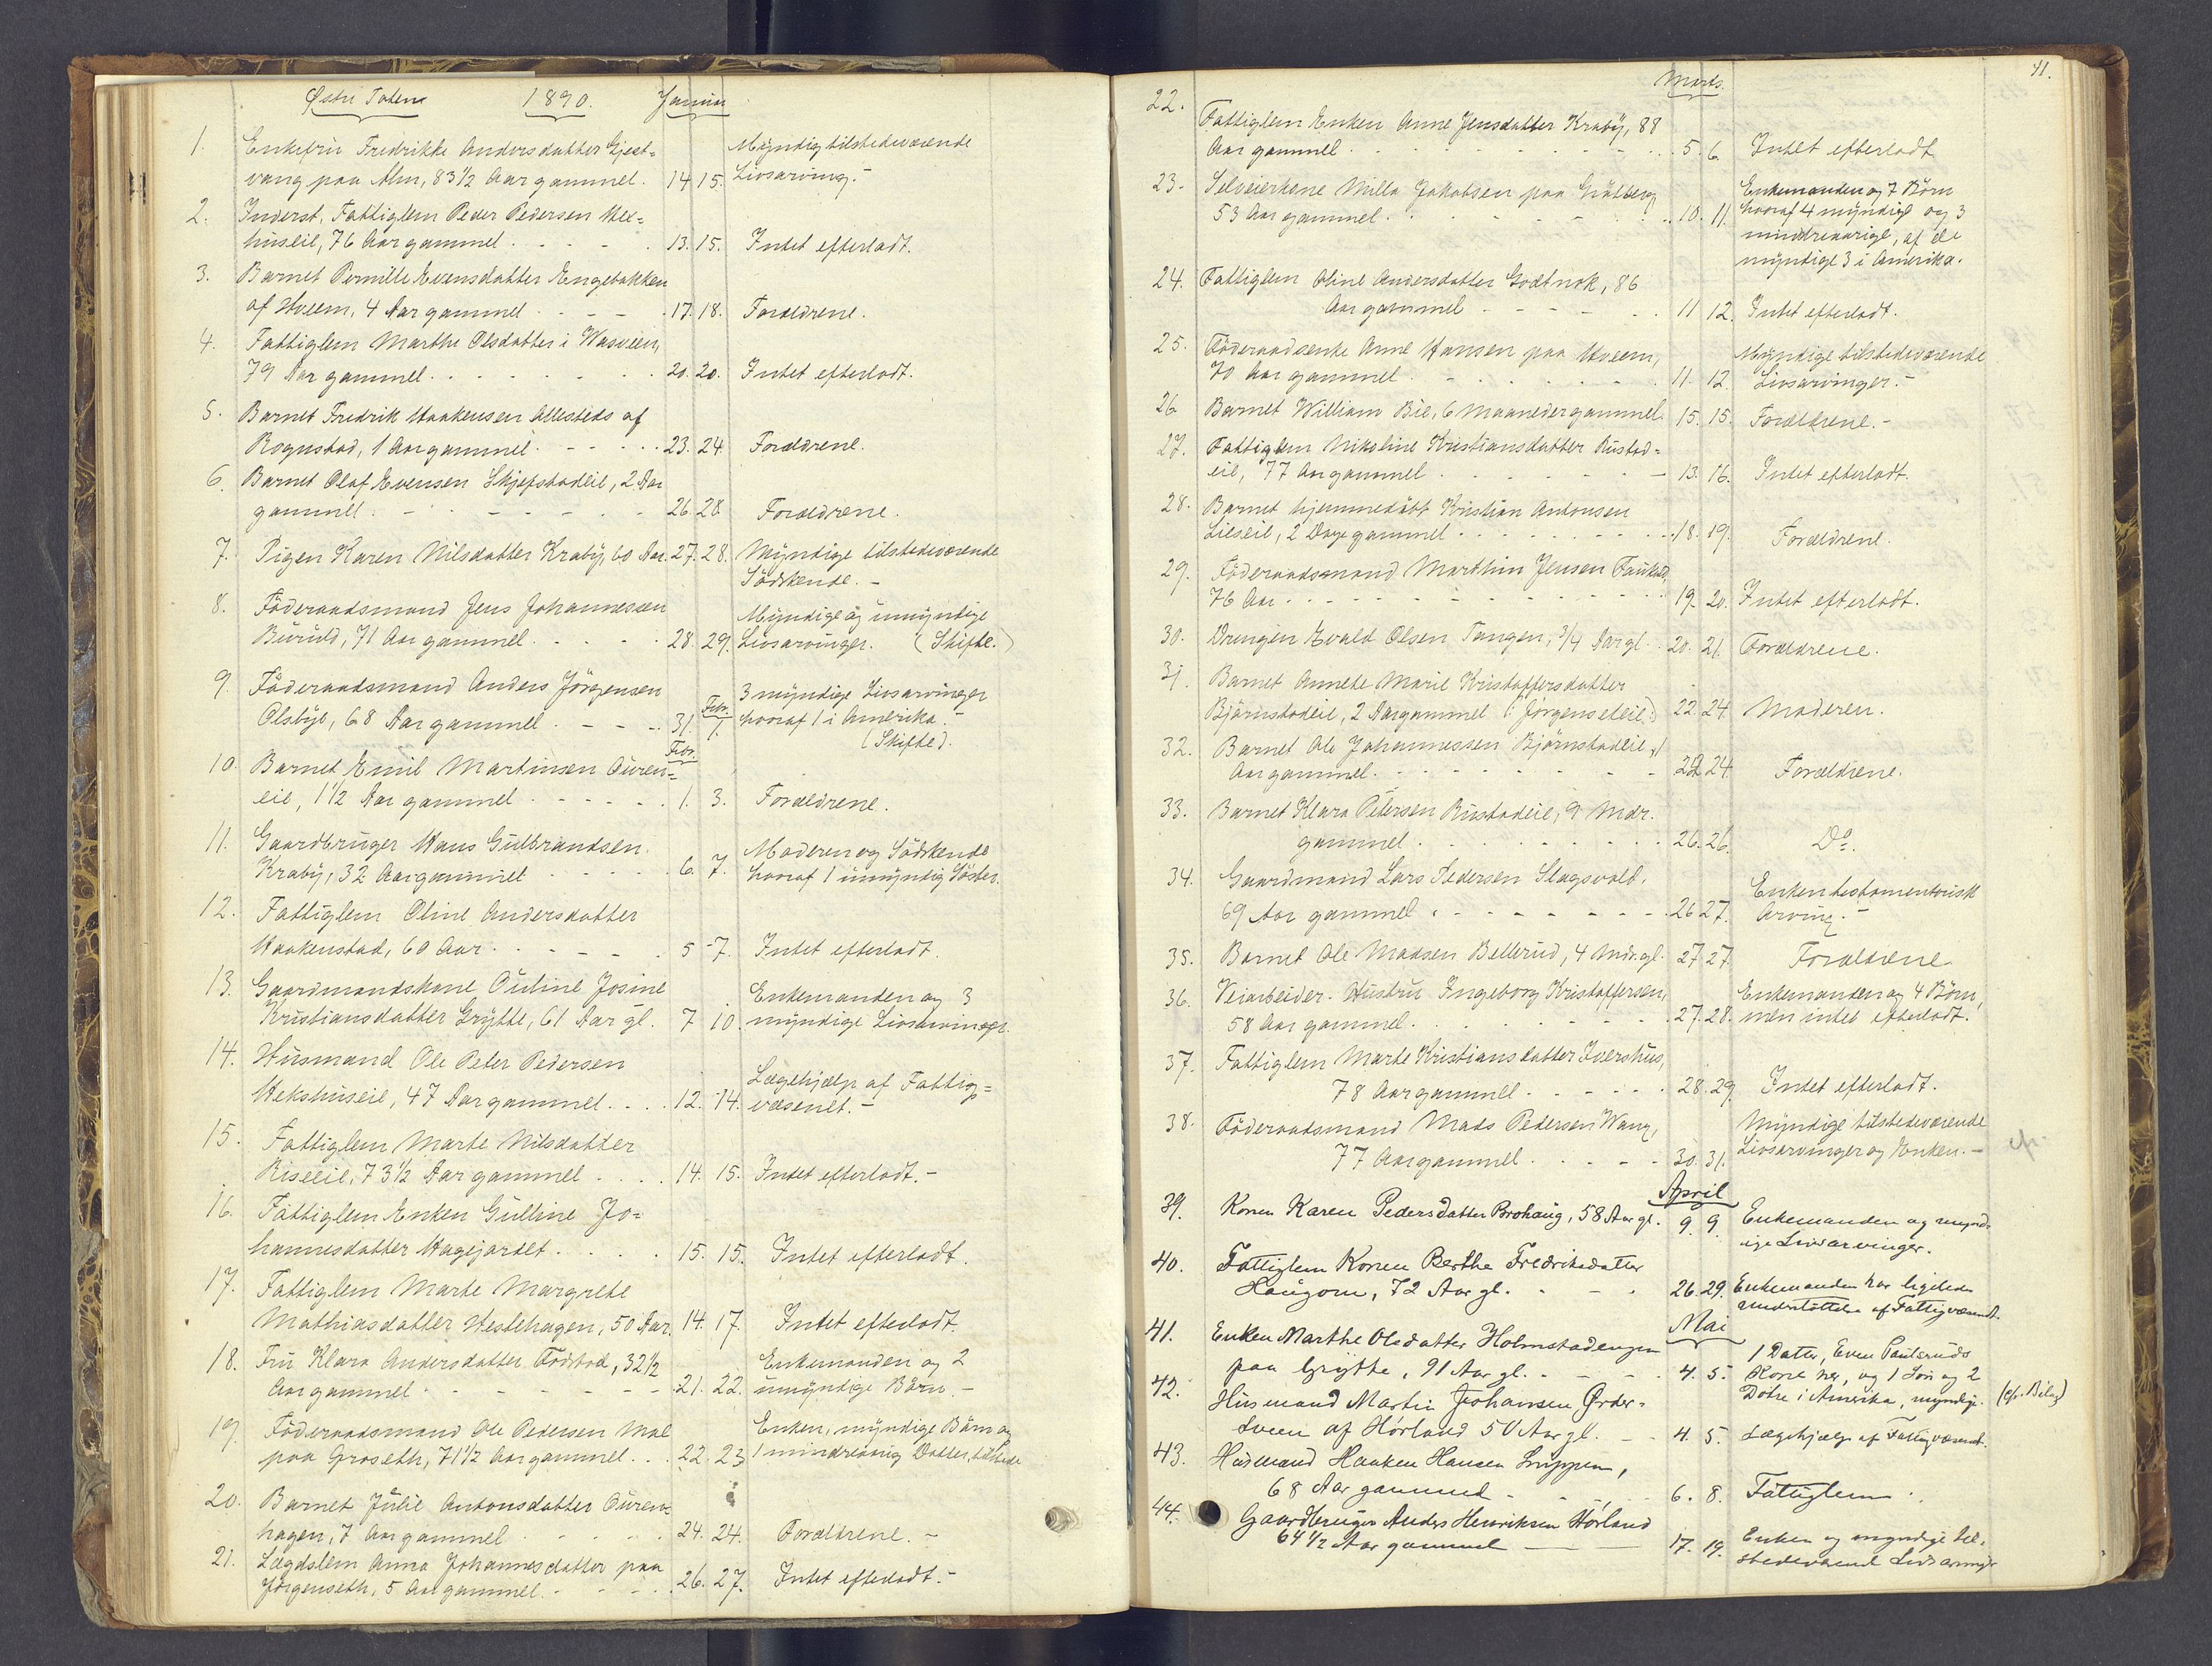 Østre Toten 1890. Januar
1. Enkefru Fredrikke Andersdatter Gjest=
Myndig tilstedeværende
vang paa Alm, 83 1/2 Aar gammel. 14. 15. Livsarving.-
2. Inderst, Fattiglem Peder Pedersen Hex=
huseie, 76 Aar gammel. 13. 15. Intet efterladt.
3. Barnet Pernille Evensdatter Engebakken
af Hveem, 4 Aar gammel 17. 18. Forældrene.
4. Fattiglem Marthe Olsdatter i Wasveen,
79 Aar gammel. 20. 20. Intet efterladt.
5. Barnet Fredrik Haakensen Allesteds af
Rognstad, 1 Aar gammel. 23. 24. Forældrene.
6. Barnet Olaf Evensen Skjefstadeie, 2 Aar
gammel. 26. 28 Forældrene.
7. Pigen Karen Nilsdatter Kraby, 60 Aar. 27. 28. Myndige tilstedeværende
Södskende.-
8. Föderaadsmand Jens Johannessen
Myndige og umyndige
Bururd, 71 Aar gammel. 28. 29. Livsarvinger. (Skifte.)
9. Föderaadsmand Anders Jörgensen
3 myndige Livsarvinger
Febr.
Olsbye, 68 Aar gammel 31. 1. hvoraf 1 i Amerika.-
(Skifte).
Febr.
10. Barnet Emil Martinsen Ouren=
eie, 1 1/2 Aar gammel 1. 3. Forældrene.
11. Gaardbruger Hans Gulbrandsen
Moderen og Södskende
Kraby, 32 Aar gammel 6. 7. hvoraf 1 umyndig Söster.
12. Fattiglem Oline Andersdatter
Haakenstad, 60 Aar. 5 7. Intet efterladt.
13. Gaardmandskone Ouline Josine
Enkemanden og 3
Kristiansdatter Grytte, 61 Aar gl. 7 10. myndige Livsarvinger.
14. Husmand Ole Peter Pedersen
Lægehjælp af Fattig=
Hekshuseie, 47 Aar gammel. 12. 14. væsenet.-
15. Fattiglem Marte Nilsdatter
Riseeie, 73 1/2 Aar gammel 14. 15. Intet efterladt.-
16. Fattiglem Enken Gulline Jo=
hannesdatter Hagejordet. 15. 15. Intet efterladt.
17. Fattiglem Marte Margrete
Mathiasdatter Hestehagen, 50 Aar. 14. 17. Intet efterladt.
18. Fru Klara Andersdatter Fodstad, 32 1/2
Enkemanden og 2
Aar gammel 21. 22. umyndige Börn.-
19. Föderaadsmand Ole Pedersen Mæl
Enken, myndige Börn og
paa Groseth, 71 1/2 Aar gammel. 22. 23 1 mindreaarig Datter, tilstede
20. Barnet Julie Antonsdatter Ouren=
hagen, 7 Aar gammel 24. 24. Forældrene.-
21. Lægdslem Anna Johannesdatter paa
Jörgenseth, 5 Aar gammel. 26. 27. Intet efterladt.-
41.
Marts.
22. Fattiglem Enken Anne Jensdatter Kraby, 88
Aar gammel 5. 6. Intet efterladt
23. Selveierkone Milla Jakobsen paa
Enkemanden og 7 Börn
53 Aar gammel. 10. 11. hvoraf 4 myndige og 3
mindreaarige, af de
myndige 3 i Amerika.
24. Fattiglem Oline Andersdatter Godtnok, 86
Aar gammel 11 12. Intet efterladt.
25. Föderaadsenke Anne Hansen paa Hveem,
Myndige tilstedeværende
70 Aar gammel 11. 12. Livsarvinger.-
26 Barnet William Bie, 6 Maaneder gammel. 15. 15. Forældrene.-
27. Fattiglem Nikoline Kristiansdatter Rustad=
eie, 77 Aar gammel 13. 16. Intet efterladt.
28. Barnet hjemmedöbt Kristian Antonsen
Lieseie, 2 Dage gammel 18. 19. Forældrene.
29. Föderaadsmand Marthin Jensen
76 Aar 19. 20. Intet efterladt.
30. Drengen Evald Olsen Tangen, 3/4 Aar gl. 20. 21. Forældrene.
31. Barnet Annete Marie Kristoffersdatter
Bjørnstadeie, 2 Aar gammel (Jørgenseteie) 22 24 Moderen.
32. Barnet Ole Johannessen Bjørnstadeie, 1
Aar gammel. 22 24. Forældrene.
33. Barnet Klara Petersen Rustadeie, 9 Mdr.
gammel 26. 26. Do.
34. Gaardmand Lars Pedersen Slagsvold,
Enken testamentarisk
69 Aar gammel 26 27. Arving.-
35. Barnet Ole Madsen Bellerud, 4 Mdr. gl. 27 27. Forældrene
36. Veiarbeider. Hustru Ingeborg Kristoffersen,
Enkemanden og 4 Börn,
58 Aar gammel. 27. 28. men intet efterladt.
37. Fattiglem Marte Kristiansdatter Ivershus,
78 Aar gammel 28. 29 Intet efterladt.
38. Föderaadsmand Mads Pedersen Wang,
Myndige tilstedeværende
77 Aar gammel 30. 31. Livsarvinger og Enken.-
April
39. Konen Karen Pedersdatter Brohaug, 58 Aar gl. 9. 9. Enkemanden og mynd-
ige Livsarvinger.
40. Fattiglem Konen Berthe Fredriksdatter
Haugom, 72 Aar gl. 26. 29. Enkemanden har ligeledes
understöttelse af Fattigvæsenet.
Mai
41. Enken Marthe Olsdatter Holmstadengen
1 Datter, Even Paulsruds
paa Grytte, 91 Aar gl. 4. 5. Kone her, og 1 Sön og 2
Dötre i Amerika, myndige. (cfr. Bilag)
42. Husmand Martin Johansen Ørder-
sveen af Hørland 50 Aar gl. 4. 5. Lægehjælp af Fattigvæsenet.
43. Husmand Haaken Hansen
68 Aar gammel 6. 8. Fattiglem.
44. Gaardbruger Anders Henriksen Hørland
Enken og myndige til-
64 1/2 Aar gammel 17. 19. stedeværende Livsarvinger